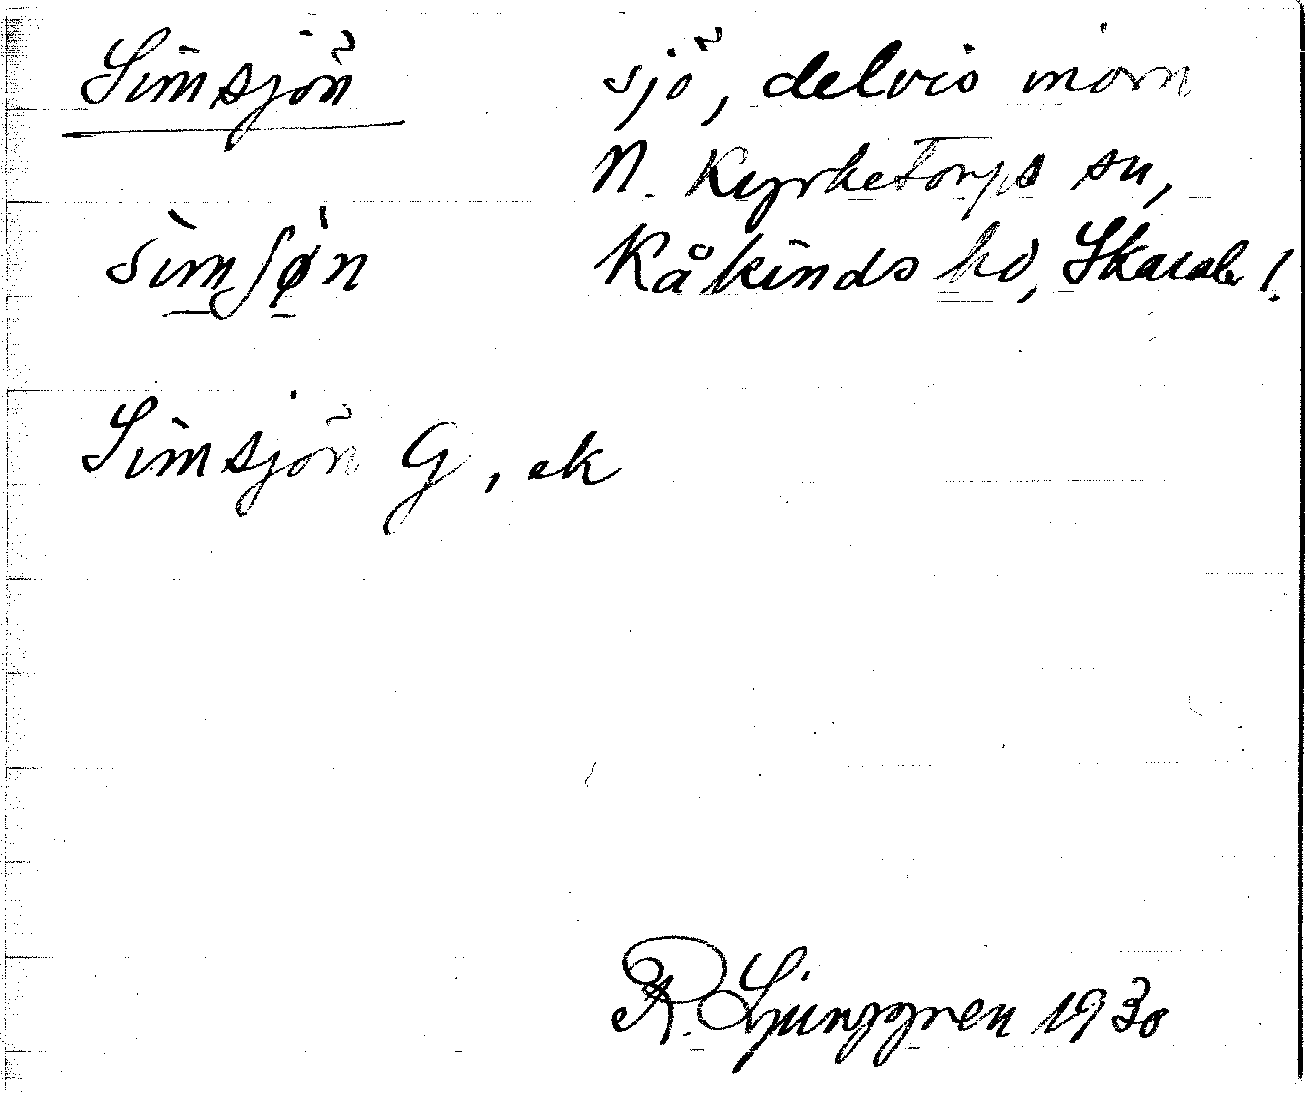 Simsjön
sjö, delvis inom
N. Kyrketorps sn,
Kåkinds hd, Skarab!
sìmʃø̀n
Simsjön G, ek
R. Ljunggren 1930